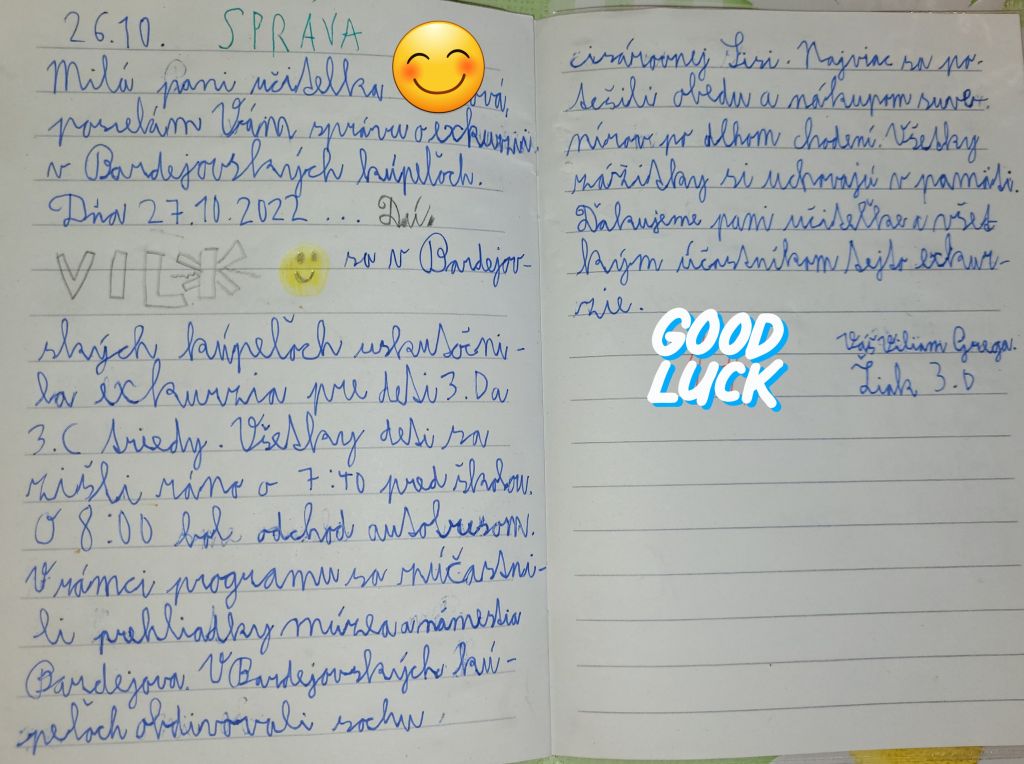 26.10. SPRÁVA
Milá pani učitelka ová,
posielám Vám správu o exkurzii.
v Bardejovských kúpeľoch.
Dňa 27.10.2022 ...
VILK sa v Bardejov-
ských kúpeľoch uskutočni-
la exkurzia pre deti 3.D a
3.C triedy. Všetky deti sa
zišli ráno o 7:40 pred školou.
O 8:00 bol odchod autobusom.
V rámci programu sa zúčastni-
li prehliadky múzea a námestia
Bardejova. V Bardejovských kú-
peľoch obdivovali sochu
cisárovnej Sisi. Najviac sa po-
tešili obedu a nákupom suve-
nírov po dlhom chodení. Všetky
zážitky si uchovajú v pamäti.
Ďakujeme pani učiteľke a všet
kým účastníkom tejto exkur-
zie.
GOOD
LUCK
Váš Viliam Grega.
Žiak 3.D